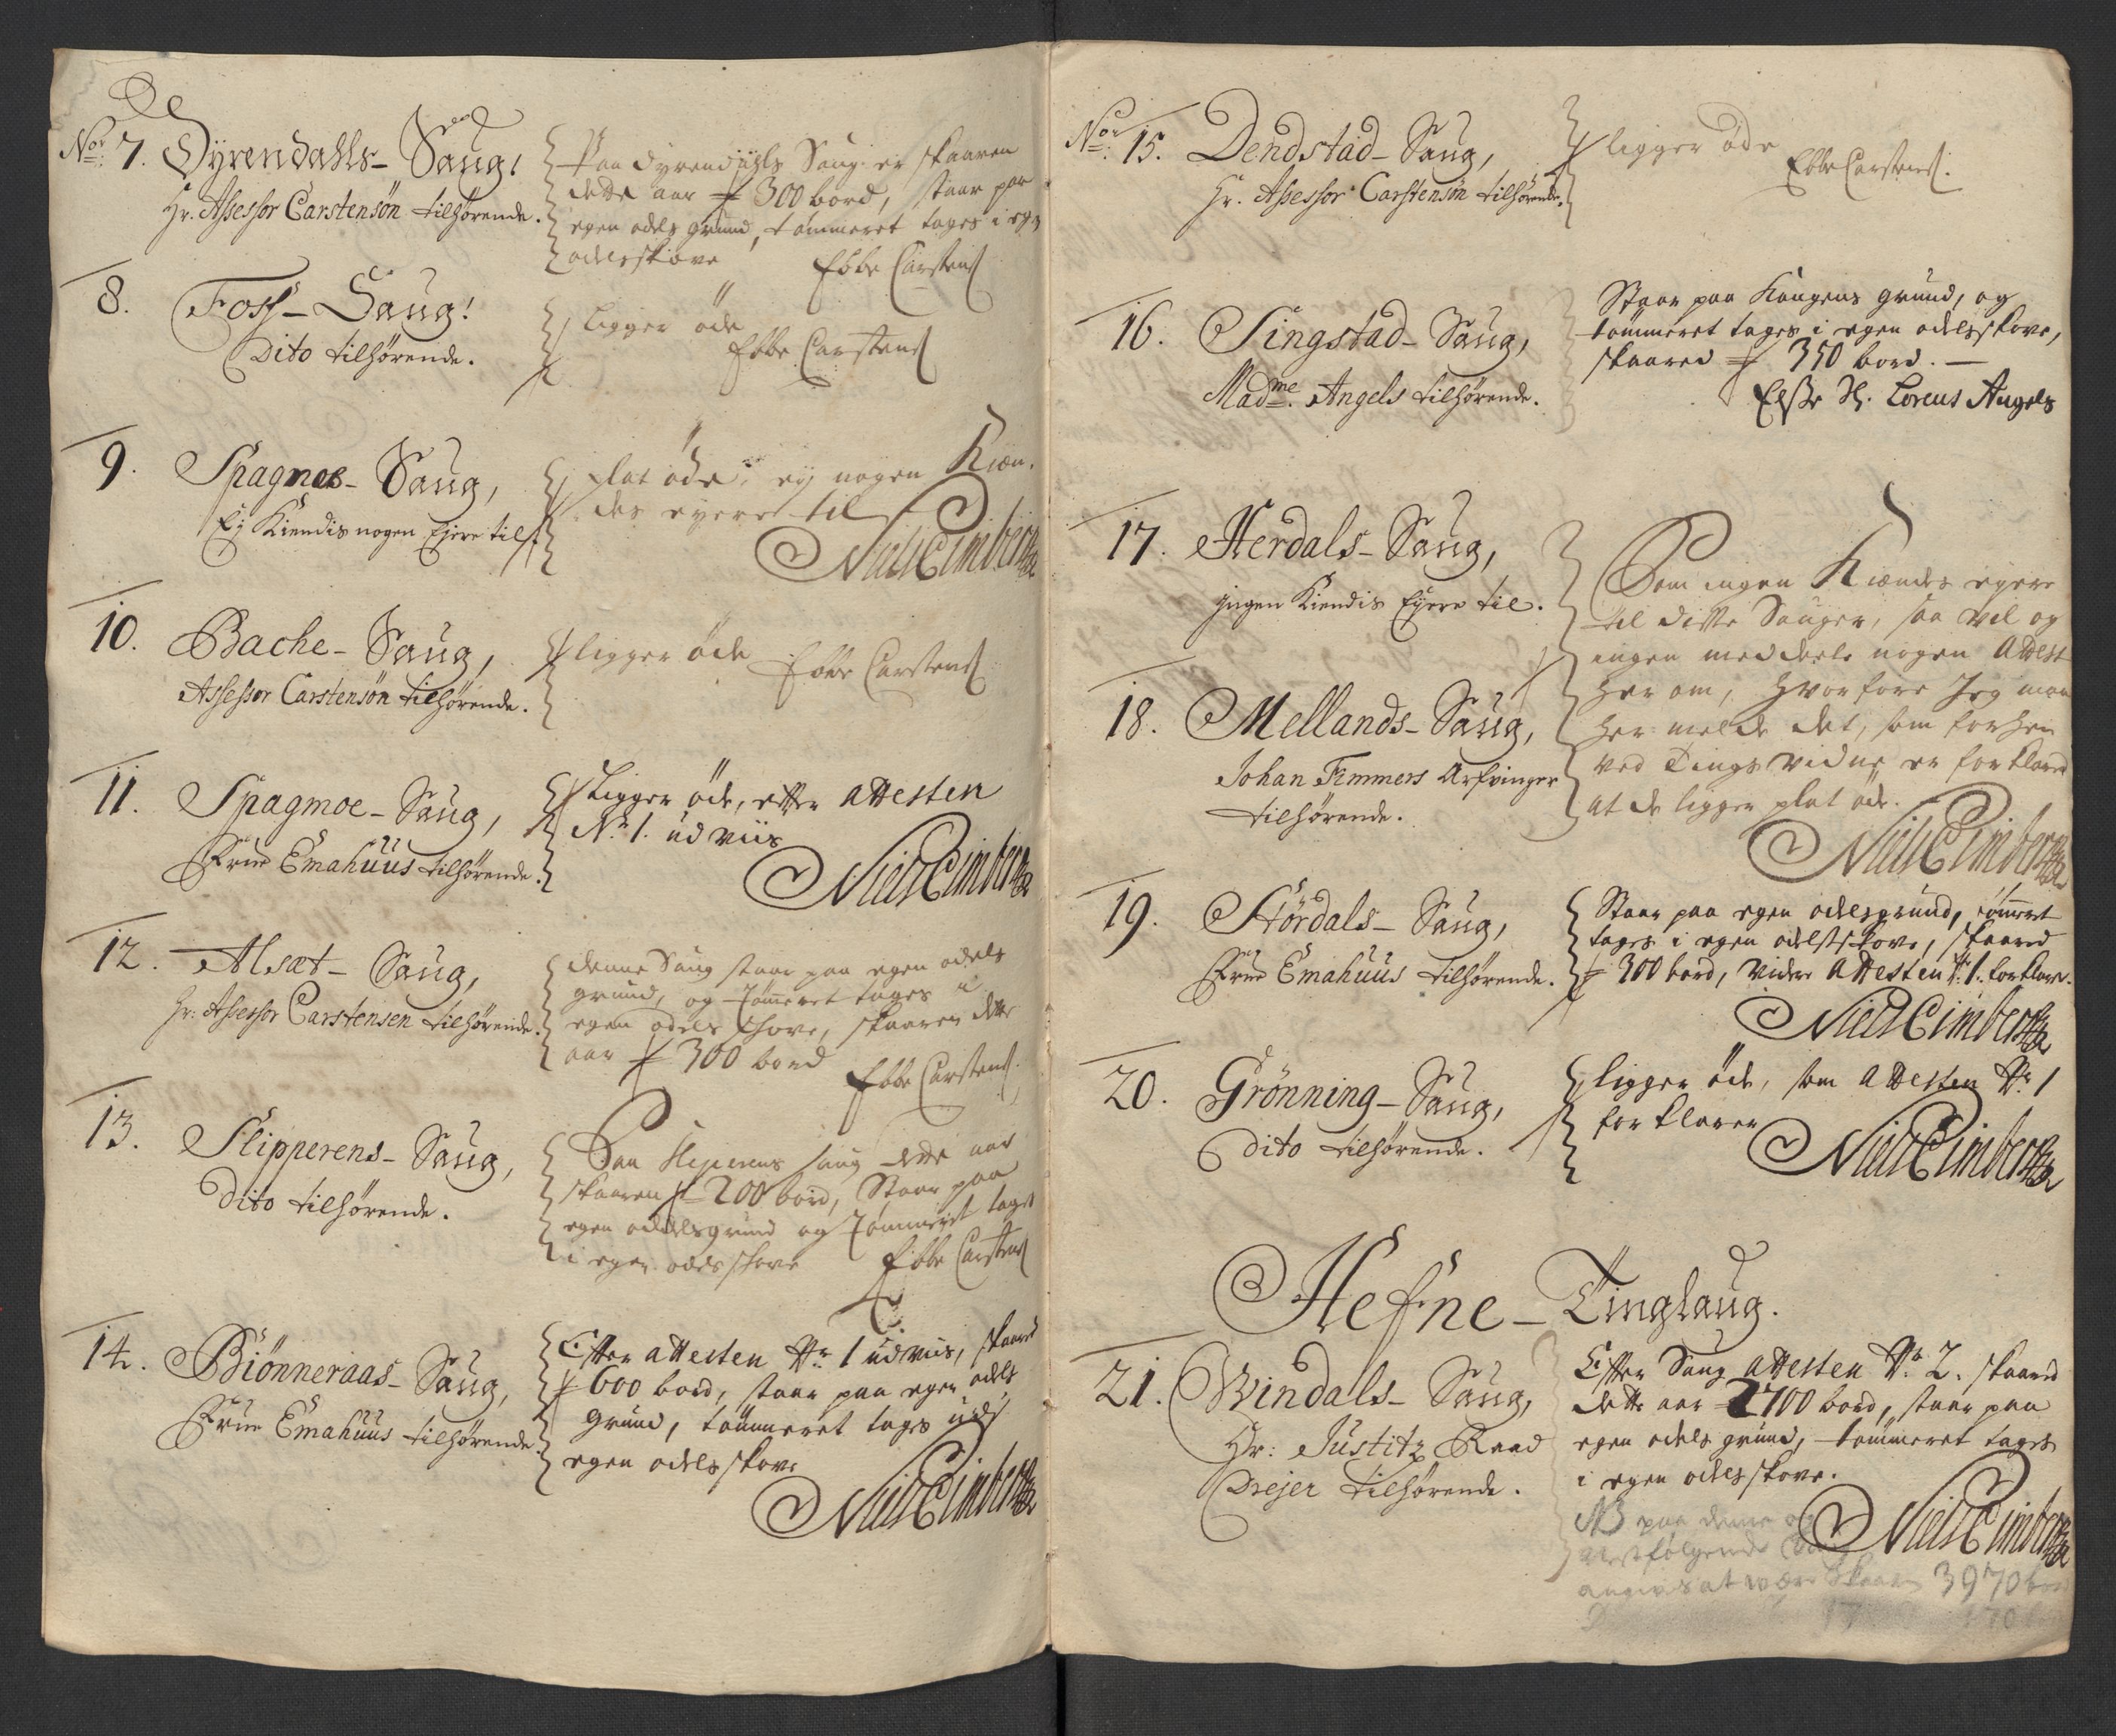 Nor: 7. Dyrendahls- Saug,
Hr. Assessor Carstensøn tilhørende.
Paa dyrendahls Saug er skaaren
dette aar 300 bord, staar paa
egen odels grund, tømmeret tages i egen
odelsskove Ebbe Carstens
8. Foss- Saug!
Dito tilhørende.
ligger øde
Ebbe Carstens
9. Spagmoe- Saug,
Ej Kiendis nogen Ejere til
plat øde, ej nogen Kien-
des eyere til
Niels Cimber
10. Bache- Saug,
Assessor Carstensøn tilhørende.
ligger øde Ebbe Carstens
11. Spagmoe- Saug,
Frue Emahuus tilhørende.
Ligger øde, efter attesten
No 1. udviis
Niels Cimber
12. Alsæt- Saug,
Hr: Assessor Carstensen tilhørende.
denne Saug staar paa egen odels
grund, og tømmeret tages i
egen odels skove, skaaren dette
aar 300 bord Ebbe Carstens
13. Slipperens- Saug,
Dito tilhørende.
Paa Sliperens saug dette aar
skaaren 200 bord, Staar paa
egen oddelsgrund og tømmeret tages
i egen odelsskove Ebbe Carstens
14. Biönneraas- Saug,
Frue Emahuus tilhørende.
Efter attesten No 1 udviis, skaaret
600 bord, staar paa egen odels
grund, tømmeret tages udj
egen odelsskove
Niels Cimber
No: 15. Dendstad- Saug,
Hr. Assessor Carstensøn tilhørende.
ligger øde
Ebbe Carstens.
16. Singstad- Saug,
Madme. Angels tilhørende.
Staar paa Kongens grund, og
tømmeret tages i egen odelsskove,
skaaret 350 bord.
Elsse Sl. Lorens Angels
17. Herdals- Saug,
Jngen Kiendis Eyere til.
18. Mellands- Saug,
Johan Temmers Arfvinger
tilhørende.
Som ingen Kiendes eyere
til disse Sauger, saa vel og
ingen meddeele nogen attest
her om, hvorfore Jeg maa
her melde det, som forhen
ved Tings vidne er forklaret
at de ligger plat øde.
Niels Cimber
19. Hördals- Saug,
Frue Emahuus tilhørende.
Staar paa egen odelsgrund, tømeret
tages i egen odelsskove, skaaret
300 bord, videre attesten No: 1. forklare.
Niels Cimber
20. Grönning- Saug,
Dito tilhørende.
ligger øde, som attesten No 1
forklarer
Niels Cimber
Hefne- Tinglaug.
21. Windals- Saug,
Hr: Justitz Raad
Drejer tilhørende.
Efter Saug attesten No: 2. skaaret
dette aar 2700 bord, staar paa
egen odels grund, tømmeret tages
i egen odelsskove.
Niels Cimber
NB paa denne og
næstfølgende
angives at være skaaren 3970 bord